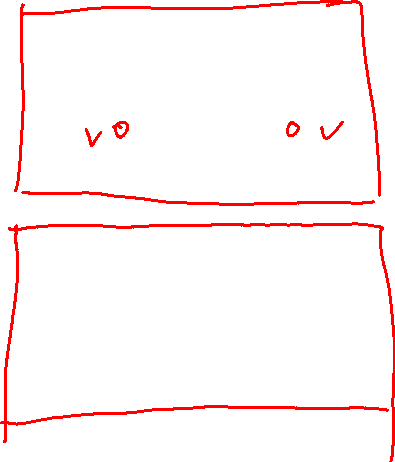 vo ov